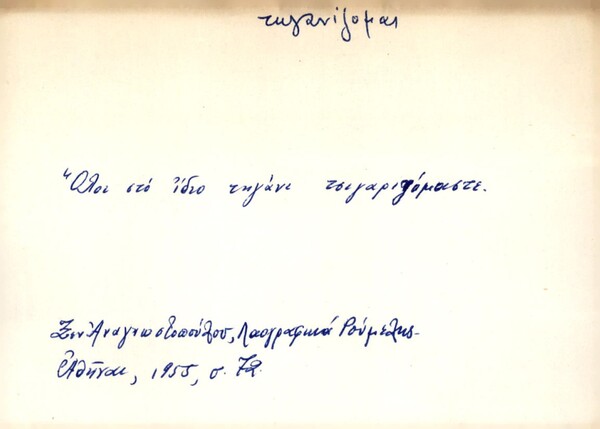 τηγανίζομαι
Ὅλοι στό ἴδιο τηγάνι τσιγαριζόμαστε.
Ξεν Ἀναγνωστοπούλου, Λαογραφικά Ρούμελης -
Ἀθῆναι, 1955, σ. 72.